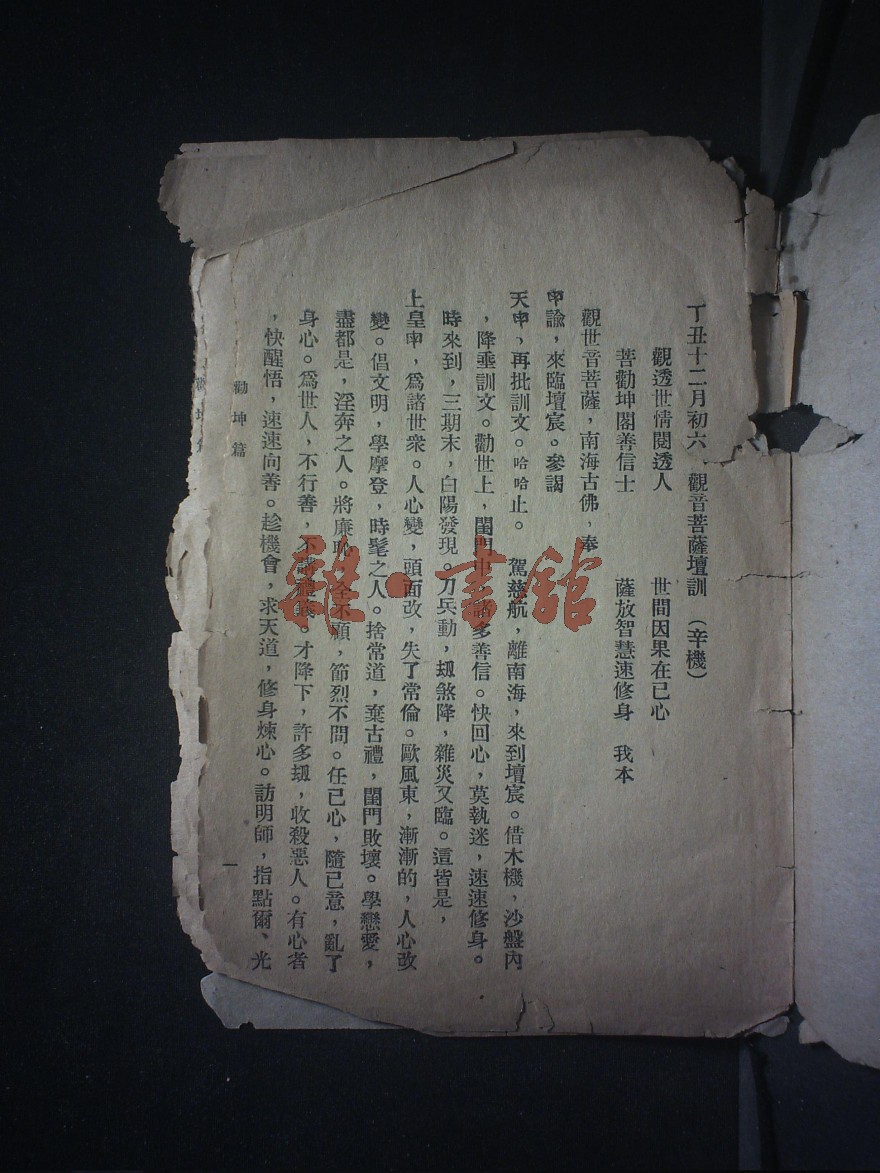 丁丑十二月初六、觀音菩薩壇訓 (辛機)
觀透世情閱透人 世間因果在已心
菩勸坤閣善信士 薩放智慧速修身 我本
觀世音菩薩，南海古佛，奉
申諭，來臨壇宸。參謁
天申，再批訓文。哈哈止。 駕慈航，離南海，來到壇宸。借木機，沙盤內
，降垂訓文。勸世上，閨門中，諸多善信。快回心，莫執迷，速速修身。
時來到，三期末，白陽發現。刀兵動，刼煞降，雜災又臨。這皆是，
上皇申，爲諸世衆。人心變，頭面改，失了常倫。歐風東，漸漸的，人心改
變。倡文明，學摩登，時髦之人。捨常道，棄古禮，閨門敗壞。學戀愛，
盡都是，淫奔之人。將廉恥，全不顧，節烈不問。任已心，隨已意，亂了
身心。爲世人，不行善，不講禮義。才降下，許多刼，收殺惡人。有心者
，快醒悟，速速向善。趁機會，求天道，修身煉心。訪明師，指點爾、光
勸坤篇
一
雜·書館